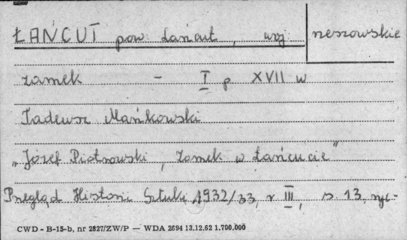 ŁAŃCUT pow Łańcut, woj rzeszowskie
zamek - I p XVII w
Tadeusz Mańkowski
„Józef Piotrowski, Zamek w Łańcucie"
Przegląd Historii Sztuki 1932/33, r III, s. 13, ryc.
CWD - B-15-b, nr 2827/ZW/P — WDA 2694 13.12.62 1.700.000